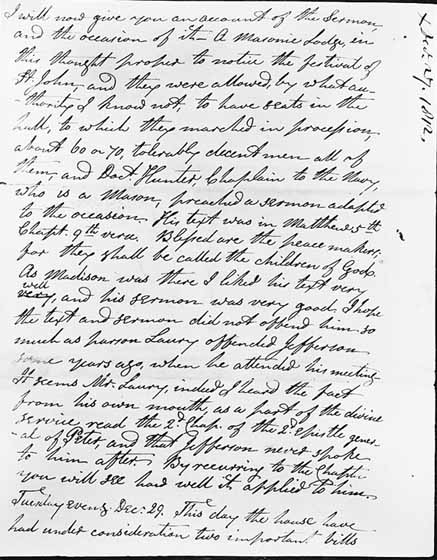 Dec. 27. 1812.
I will now give you an account of the Sermon,
and the occasion of it — A Masonic Lodge, in
this thought proper to notice the festival of
St. John, and they were allowed, by what au-
-thority I know not, to have seats in the
hall, to which they marched in procession,
about 60 or 70, tolerably decent men all of
them, and Doct. Hunter, Chaplain to the Navy,
who is a Mason, preached a sermon adapted
to the occasion. His text was in Matthew 5th
Chapt. 9th verse. Blessed are the peace makers,
for they shall be called the children of God.
As Madison was there I liked his text very
well
very, and his sermon was very good. I hope
the text and sermon did not offend him so
much as parson Laury offended Jefferson
some years ago, when he attended his meeting
It seems Mr. Laury, indeed I heard the fact
from his own mouth, as a part of the divine
service read the 2d Chap. of the 2d Epistle gener-
-al of Peter, and that Jefferson never spoke
to him after. By recurring to the Chapt.
you will see how well it applied to him.
Tuesday eveng. Dec: 29. This day the house have
had under consideration two important bills